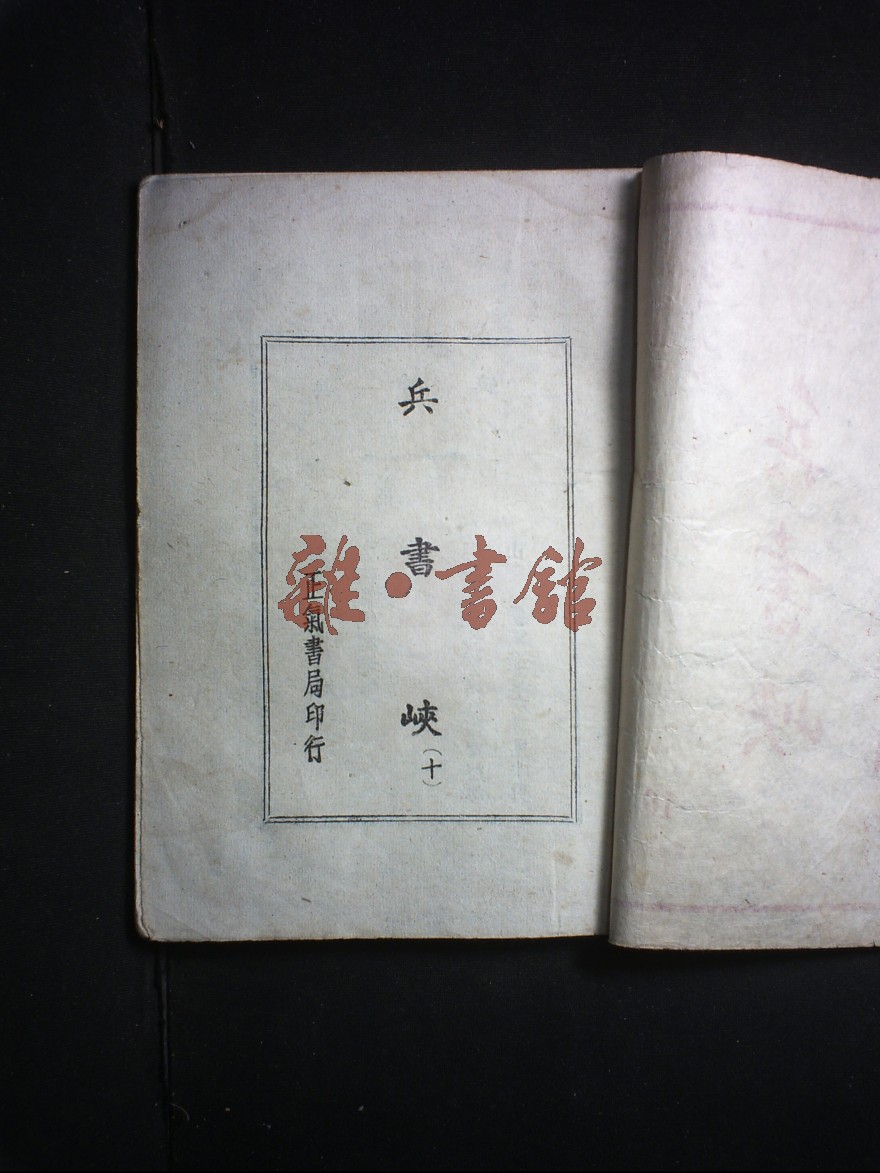 兵書峽(十)
正氣書局印行
雜·書館